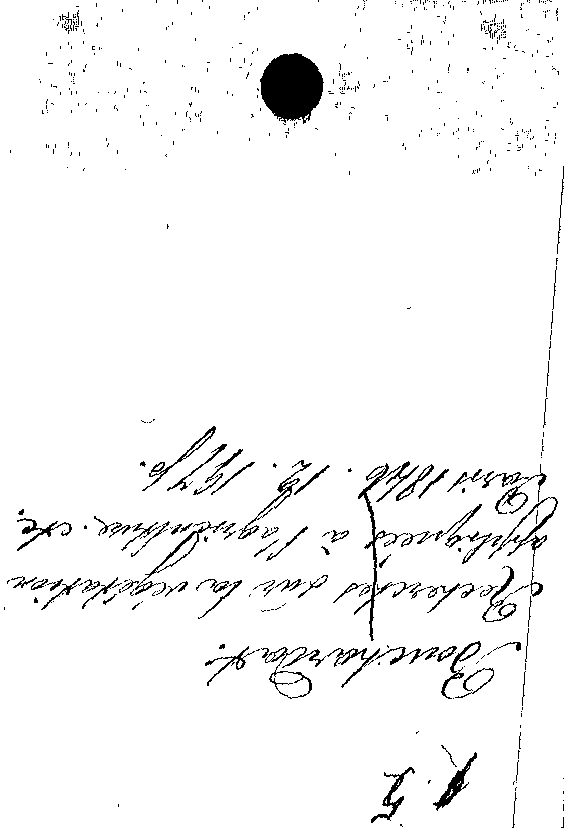 Bouchardat.
Recherches sur la végétation
appliquées à l'agriculture. etc.
Paris 1846. 12. 197 p.